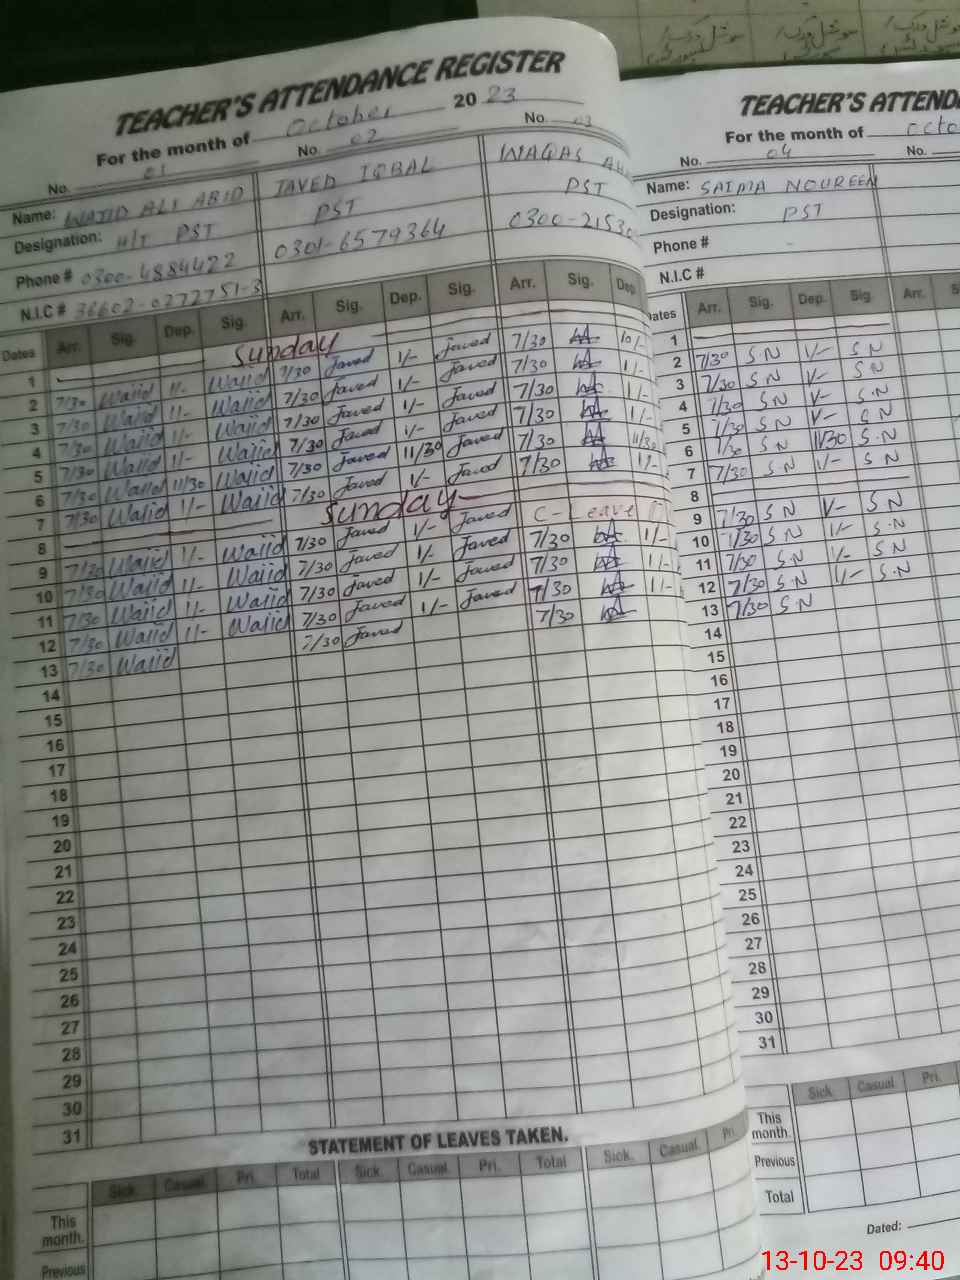 TEACHER'S ATTENDANCE REGISTER
For the month of October 2023
No. 01 No. 02 No. 03
Name: WAJID ALI ABID JAVED IQBAL WAQAS
Designation: H/T PST PST PST
Phone # 0300-4884422 0301-6579364 0300-2153
N.I.C # 36602-0272751-3
Dates Arr. Sig. Dep. Sig. Arr. Sig. Dep. Sig. Arr. Sig. Dep.
1 Sunday
2 7/30 Wajid 1/- Wajid 7/30 Javed 1/- Javed 7/30 10/-
3 7/30 Wajid 1/- Wajid 7/30 Javed 1/- Javed 7/30 1/-
4 7/30 Wajid 1/- Wajid 7/30 Javed 1/- Javed 7/30 1/-
5 7/30 Wajid 1/- Wajid 7/30 Javed 1/- Javed 7/30 1/-
6 7/30 Wajid 11/30 Wajid 7/30 Javed 11/30 Javed 7/30 11/30
7 7/30 Wajid 1/- Wajid 7/30 Javed 1/- Javed 7/30 1/-
8 Sunday
9 7/30 Wajid 1/- Wajid 7/30 Javed 1/- Javed C-Leave
10 7/30 Wajid 1/- Wajid 7/30 Javed 1/- Javed 7/30 1/-
11 7/30 Wajid 1/- Wajid 7/30 Javed 1/- Javed 7/30 1/-
12 7/30 Wajid 1/- Wajid 7/30 Javed 1/- Javed 7/30 1/-
13 7/30 Wajid 7/30 Javed 7/30
14
15
16
17
18
19
20
21
22
23
24
25
26
27
28
29
30
31
STATEMENT OF LEAVES TAKEN.
Sick. Casual. Pri. Total Sick. Casual. Pri. Total Sick. Casual. Pri.
This month.
Previous
TEACHER'S ATTEND
For the month of Octo
No. 04 No.
Name: SAIMA NOUREEN
Designation: PST
Phone #
N.I.C #
ates Arr. Sig. Dep. Sig. Arr. S
1
2 7/30 S.N 1/- S.N
3 7/30 S.N 1/- S.N
4 7/30 S.N 1/- S.N
5 7/30 S.N 1/- S.N
6 7/30 S.N 11/30 S.N
7 7/30 S.N 1/- S.N
8
9 7/30 S.N 1/- S.N
10 7/30 S.N 1/- S.N
11 7/30 S.N 1/- S.N
12 7/30 S.N 1/- S.N
13 7/30 S.N
14
15
16
17
18
19
20
21
22
23
24
25
26
27
28
29
30
31
Sick. Casual. Pri.
This month.
Previous
Total
Dated:
13-10-23 09:40